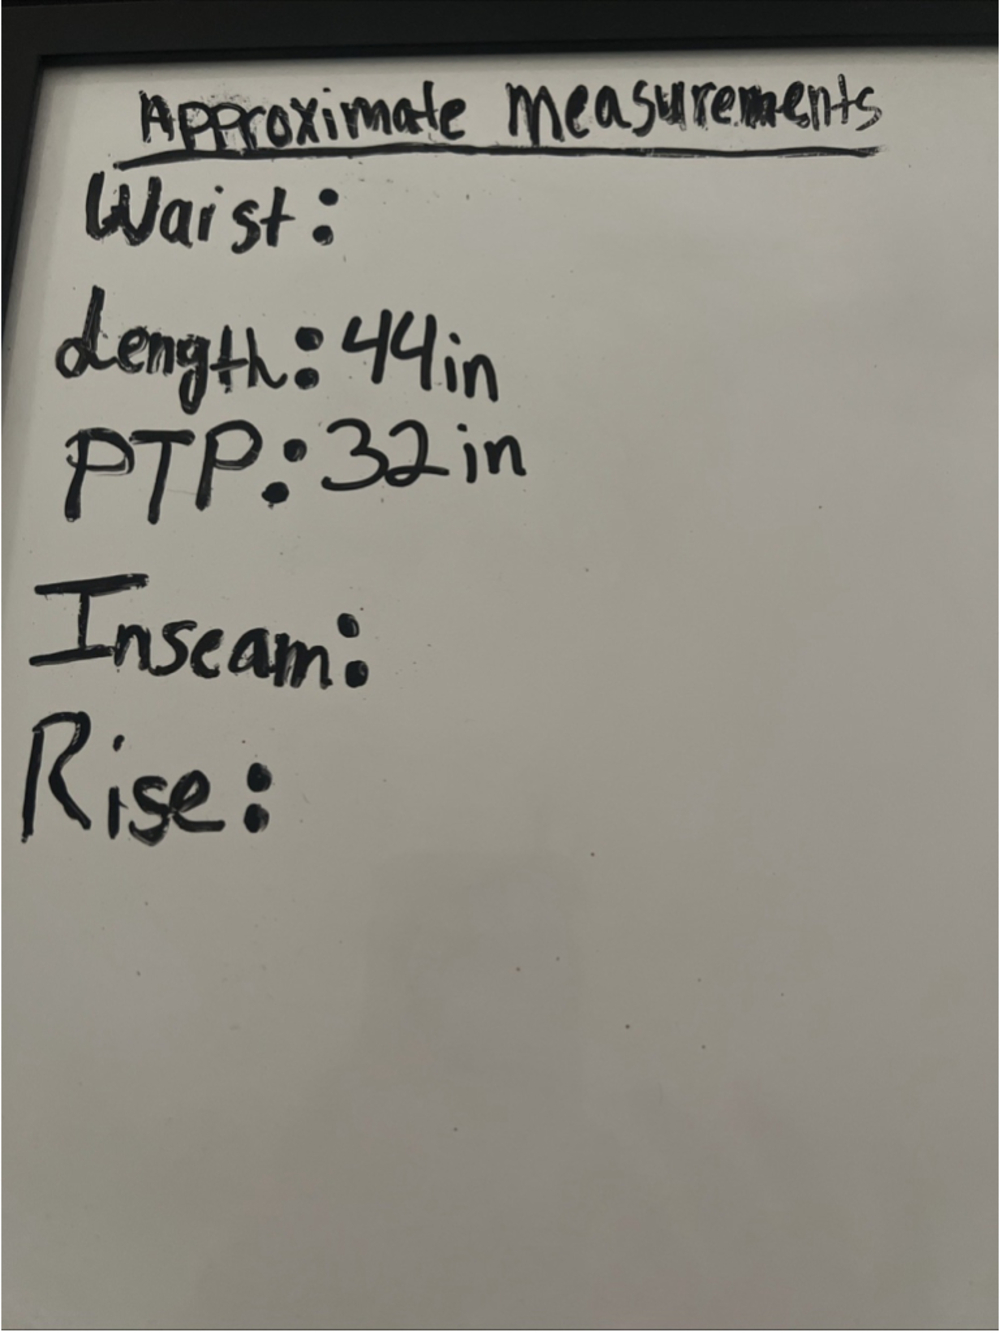 Approximate Measurements
Waist:
Length: 44in
PTP: 32in
Inseam:
Rise: